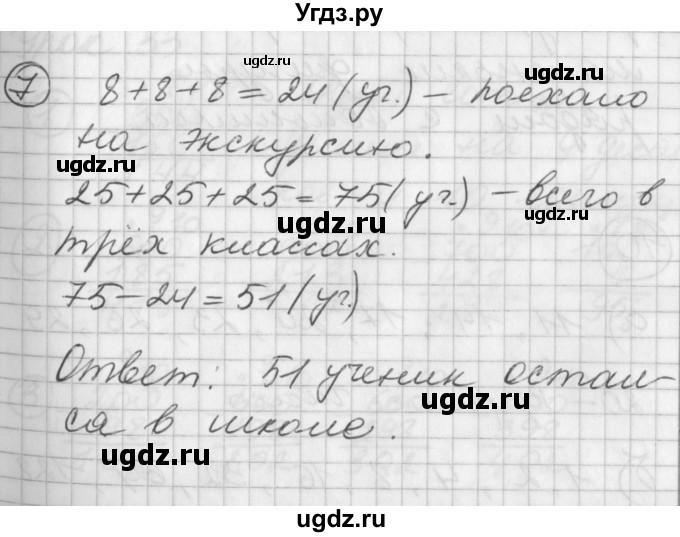 Угдз.ру
7 8+8+8=24 (уг.) – поехало
на экскурсию.
25+25+25=75 (уг.) – всего в
трёх классах.
75–24=51 (уг.)
Ответ: 51 ученик остал-
са в школе.
ugdz.ru
ugdz.ru
ugdz.ru
ugdz.ru
ugdz.ru
ugdz.ru
ugdz.ru
ugdz.ru
ugdz.ru